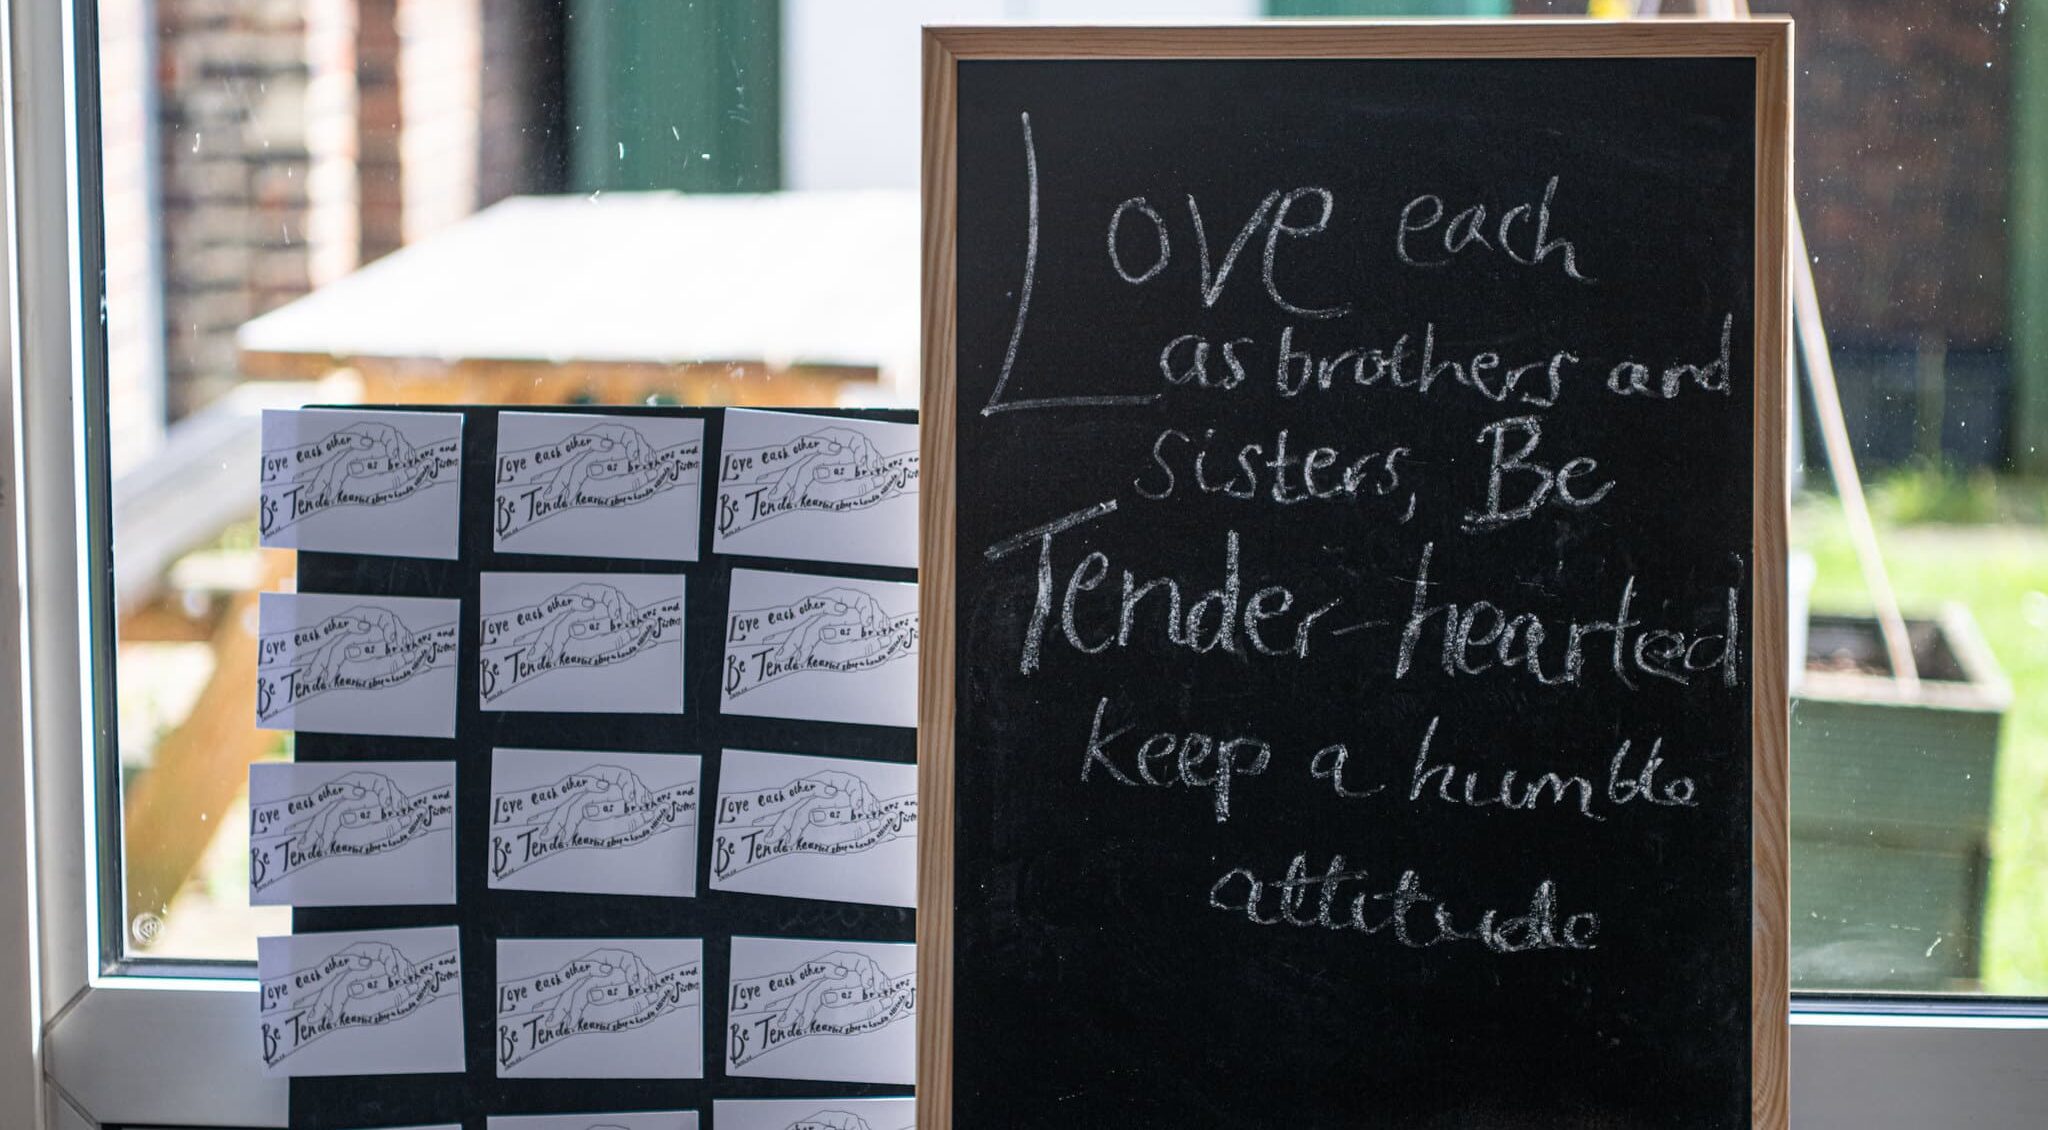 Love each
as brothers and
sisters, Be
Tender-hearted
keep a humble
attitude
Love each other
as brothers and
Sisters
Be Tender-hearted keep a humble attitude
Love each other
as brothers and
Sisters
Be Tender-hearted keep a humble attitude
Love each other
as brothers and
Sisters
Be Tender-hearted keep a humble attitude
Love each other
as brothers and
Sisters
Be Tender-hearted keep a humble attitude
Love each other
as brothers and
Sisters
Be Tender-hearted keep a humble attitude
Love each other
as brothers and
Sisters
Be Tender-hearted keep a humble attitude
Love each other
as brothers and
Sisters
Be Tender-hearted keep a humble attitude
Love each other
as brothers and
Sisters
Be Tender-hearted keep a humble attitude
Love each other
as brothers and
Sisters
Be Tender-hearted keep a humble attitude
Love each other
as brothers and
Sisters
Be Tender-hearted keep a humble attitude
Love each other
as brothers and
Sisters
Be Tender-hearted keep a humble attitude
Love each other
as brothers and
Sisters
Be Tender-hearted keep a humble attitude